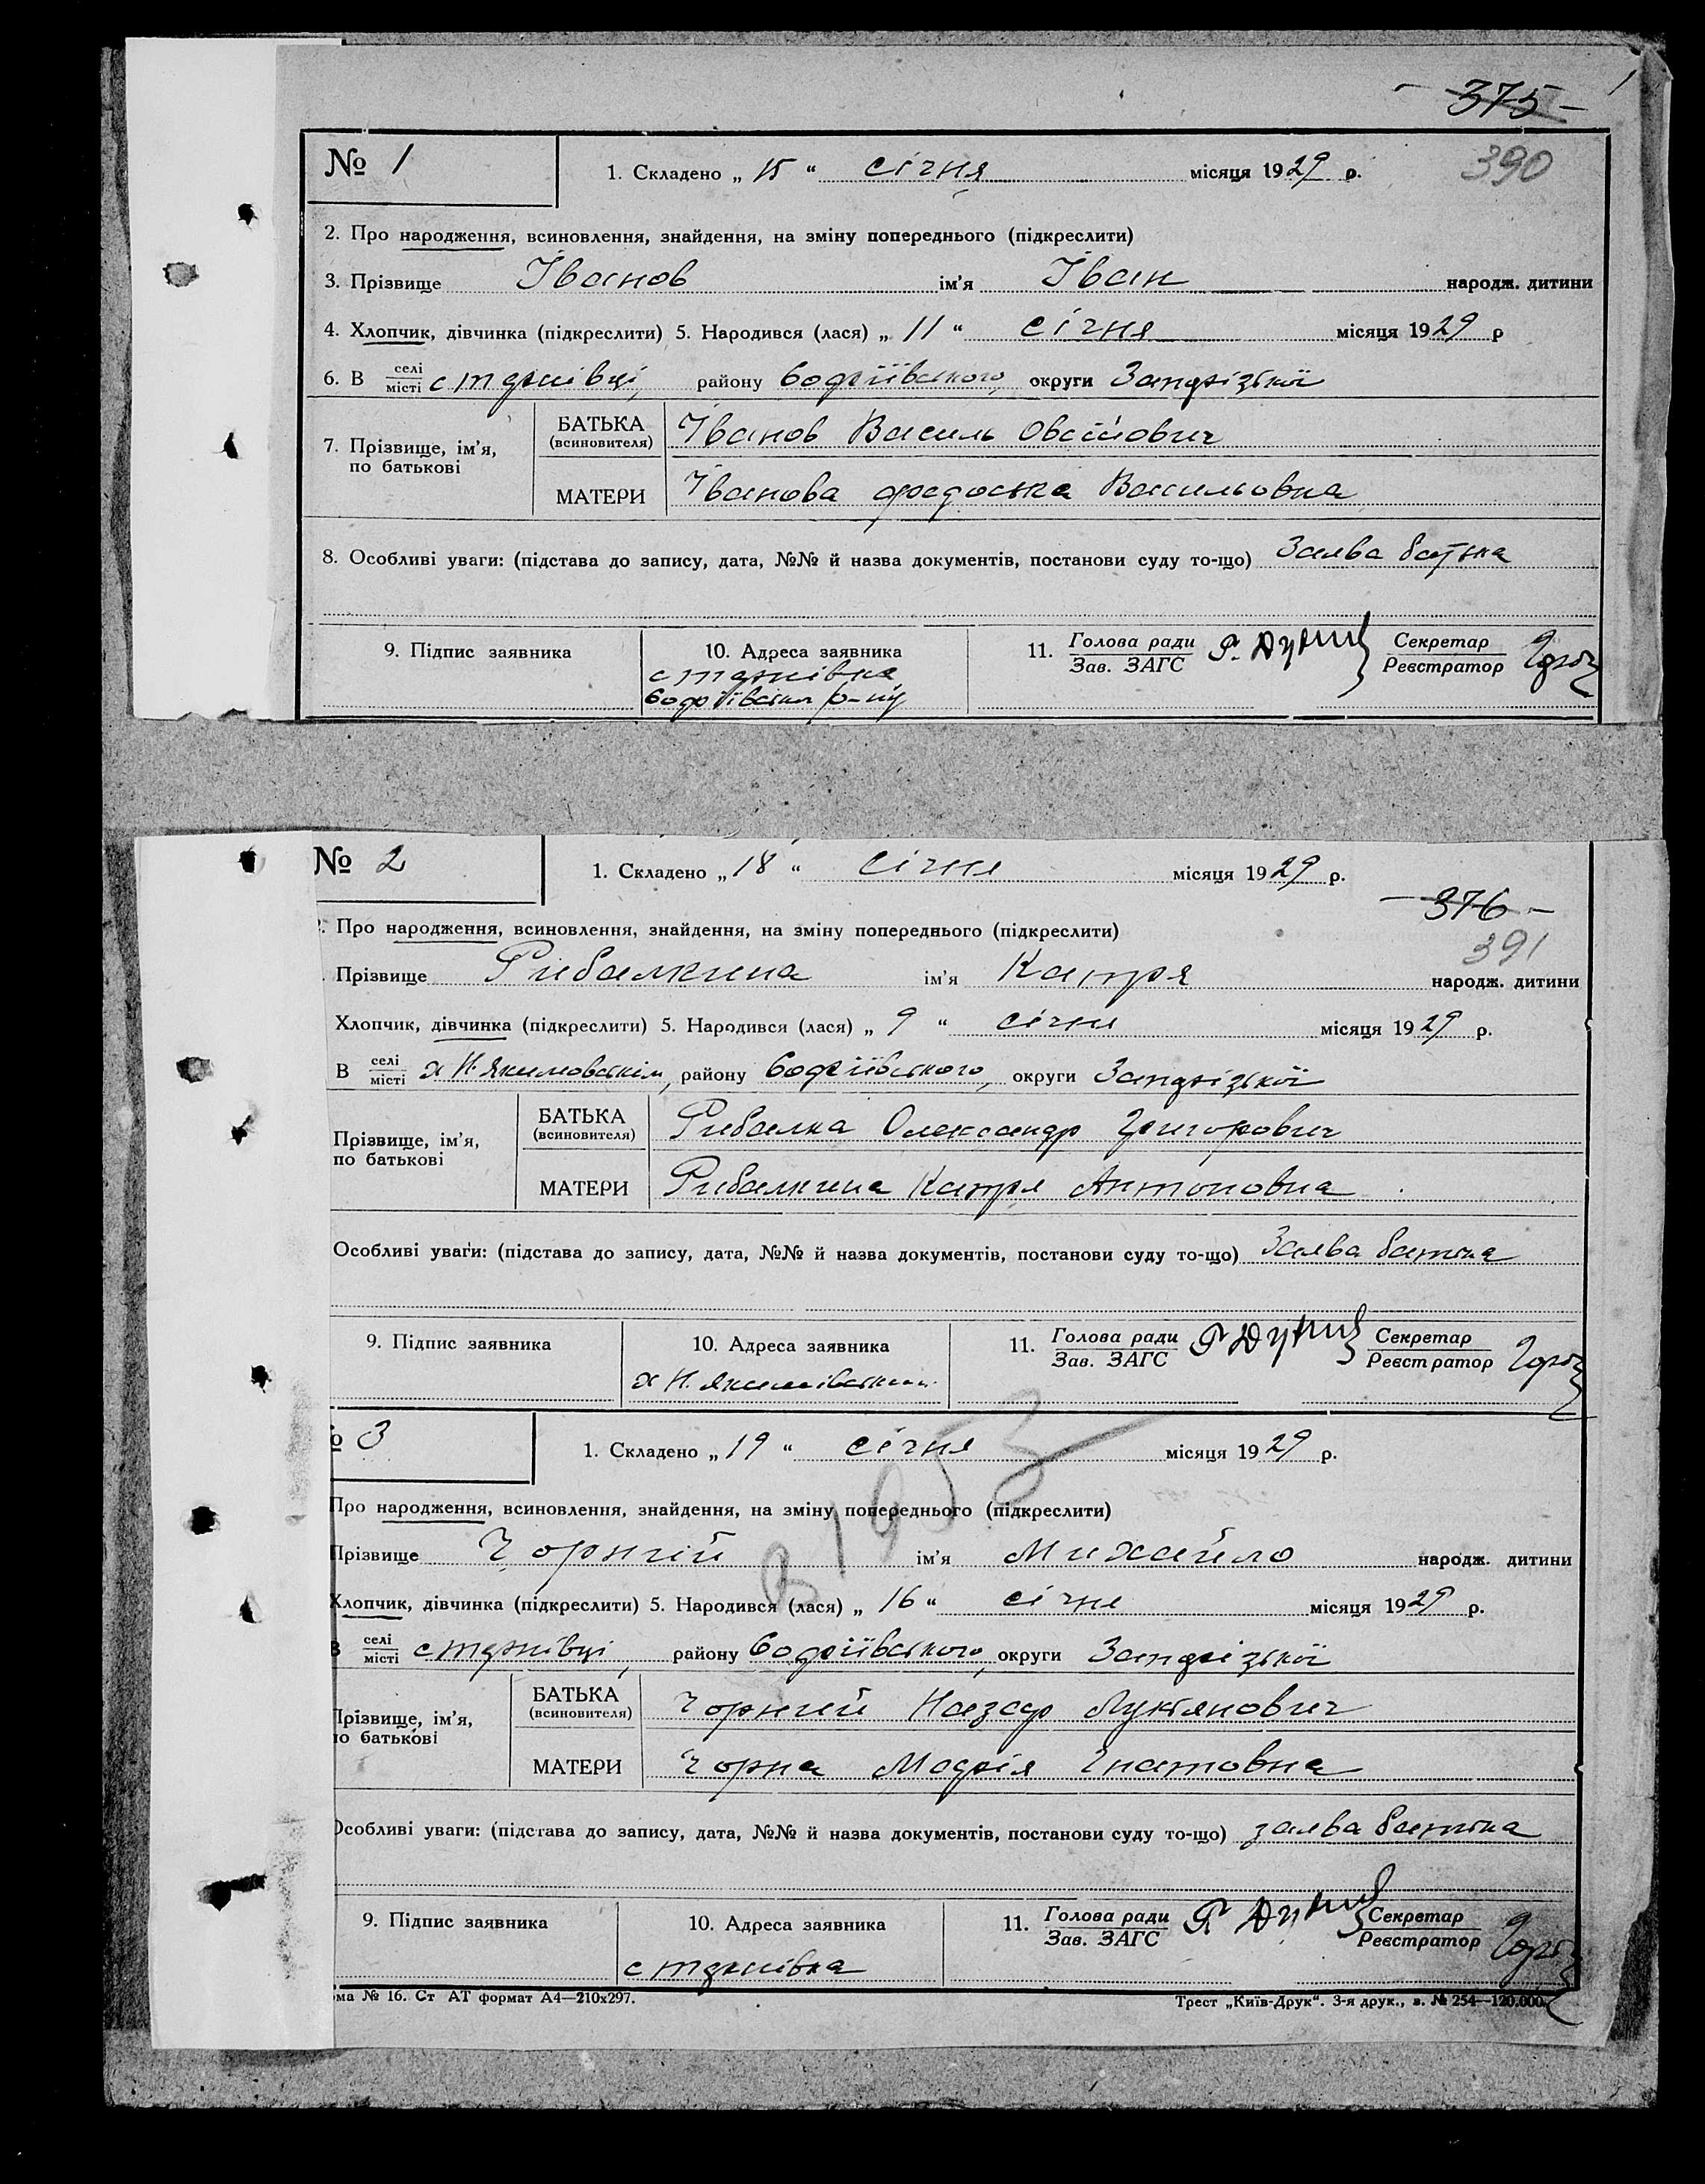 - 375 -
№ 1 1. Складено „ 15 “ січня місяця 1929 р. 390
2. Про народження, всиновлення, знайдення, на зміну попереднього (підкреслити)
3. Прізвище Іванов ім'я Іван народж. дитини
4. Хлопчик, дівчинка (підкреслити) 5. Народився (лася) „ 11 “ січня місяця 1929 р
6. В селі/місті с районy Софіївського, округи Запорізької
7. Прізвище, ім'я, по батькові
БАТЬКА (всиновителя) Іванов Василь
МАТЕРИ Іванова Федоська Васильовна
8. Особливі уваги: (підстава до запису, дата, №№ й назва документів, постанови суду то-що) Заява батька
9. Підпис заявника 10. Адреса заявника 11. Голова ради Секретар
Зав. ЗАГС Реєстратор
Софіївськ р-ну
№ 2 1. Складено „ 18 “ січня місяця 1929 р.
- 376 -
Про народження, всиновлення, знайдення, на зміну попереднього (підкреслити)
391
Прізвище Рибалкина ім'я Катря народж. дитини
Хлопчик, дівчинка (підкреслити) 5. Народився (лася) „ 9 “ січня місяця 1929 р.
В селі/місті х Н. Якимовськім, району Софіївського, округи Запорізької
Прізвище, ім'я, по батькові
БАТЬКА (всиновителя) Рибалка Олександр Григорович
МАТЕРИ Рибалкина Катря Антоновна
Особливі уваги: (підстава до запису, дата, №№ й назва документів, постанови суду то-що) Заява батька
9. Підпис заявника 10. Адреса заявника 11. Голова ради Секретар
Зав. ЗАГС Реєстратор
х Н.
3 1. Складено „ 19 “ січня місяця 1929 р.
Про народження, всиновлення, знайдення, на зміну попереднього (підкреслити)
В 1953
Прізвище Чорний ім'я Михайло народж. дитини
Хлопчик, дівчинка (підкреслити) 5. Народився (лася) „ 16 “ січня місяця 1929 р.
В селі/місті с районy Софіївського, округи Запорізької
Прізвище, ім'я, по батькові
БАТЬКА (всиновителя) Чорний Назар Лукянович
МАТЕРИ Чорна Марія Гнатовна
Особливі уваги: (підстава до запису, дата, №№ й назва документів, постанови суду то-що) заява батька
9. Підпис заявника 10. Адреса заявника 11. Голова ради Секретар
Зав. ЗАГС Реєстратор
ма № 16. Ст АТ формат А4—210х297. Трест „Київ-Друк“. 3-я друк., з. № 254—120.000.